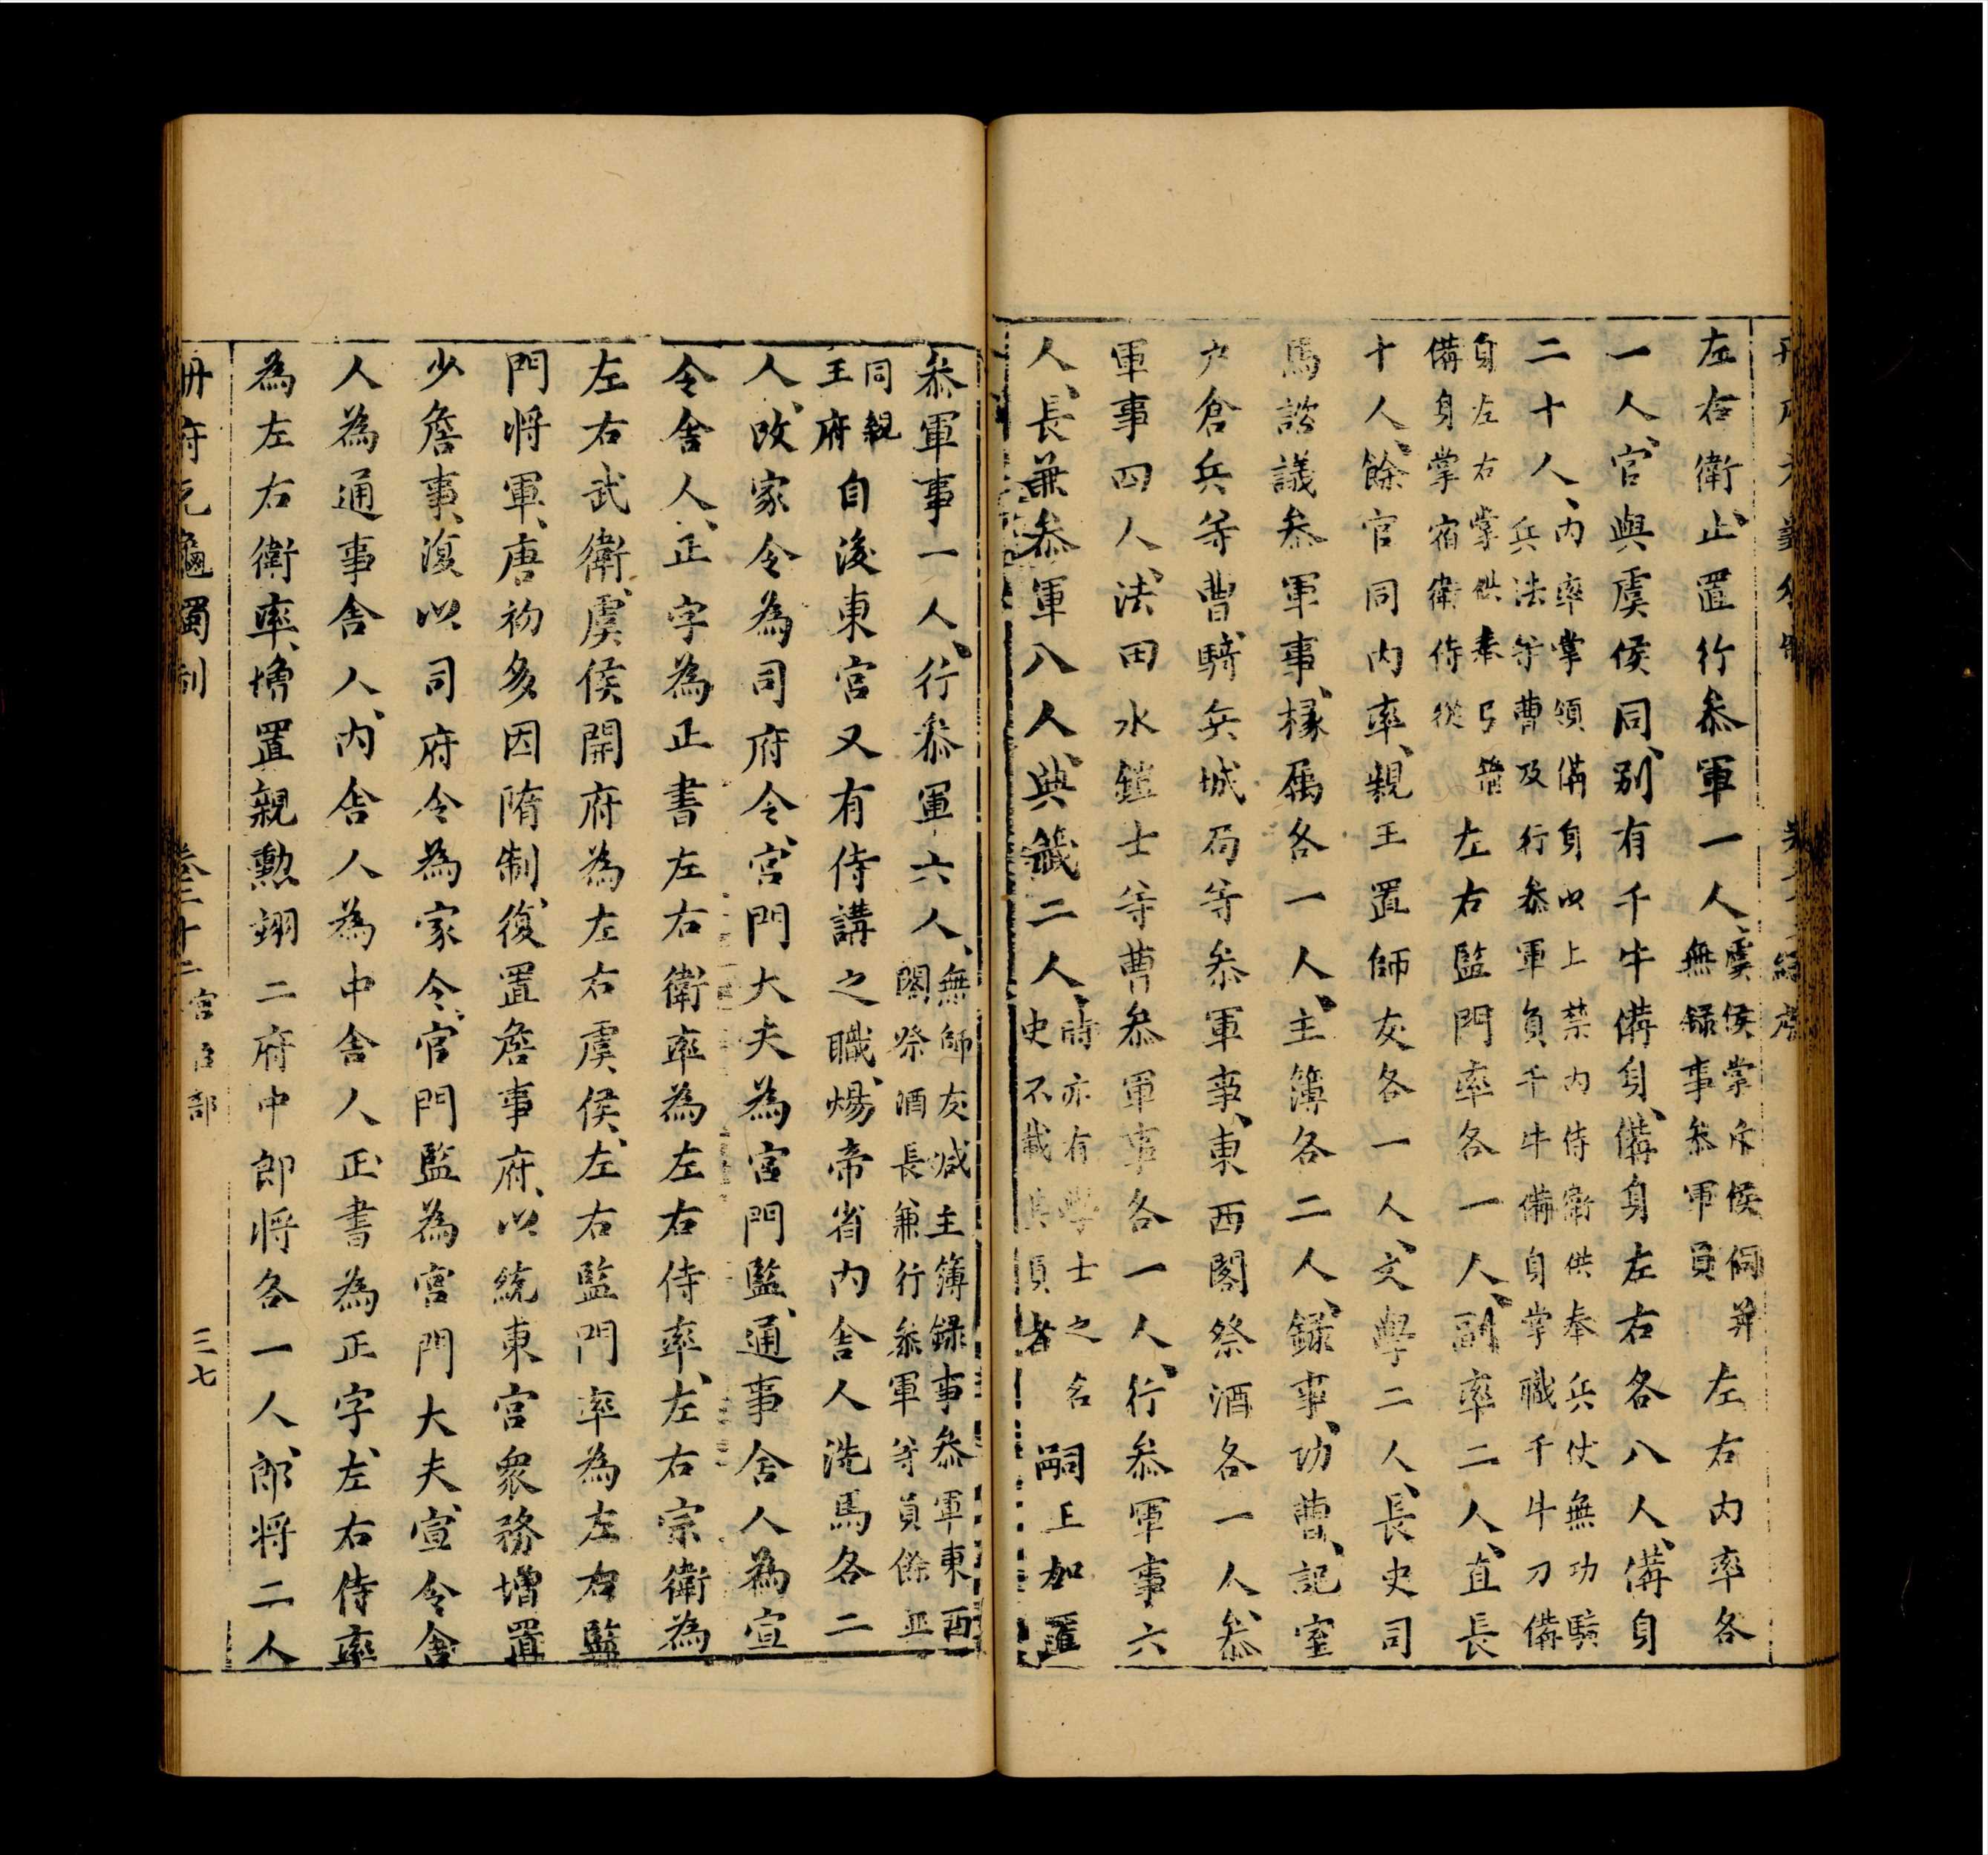 左右衛止置行叅軍一人虞侯掌斥候伺并無録事叅軍員左右内率各
一人官與虞侯同别有千牛備身備身左右各八人備身
二十人内率掌領備身以上禁内侍衛供奉兵仗無功騎兵法等曹及行叅軍員千牛備身掌職千牛刀備
身左右掌供奉弓箭備身掌宿衛侍從左右監門率各一人副率二人直長
十人餘官同内率親王置師友各一人文學二人長史司
馬諮議叅軍事掾属各一人主簿各二人録事功曹記室
户倉兵等曹騎兵城局等叅軍事東西閣祭酒各一人叅
軍事四人法田水鎧士等曹叅軍事各一人行叅軍事六
人長兼叅軍八人典籤二人時亦有學士之名史不載其員者嗣上加置
叅軍事一人行叅軍六人無師友减主簿録事叅軍東酉閣祭酒長兼行叅軍等員餘並
同親王府自後東宮又有侍講之職煬帝省内舍人洗馬各二
人改家令為司府令宮門大夫為宮門監通事舍人為宣
令舍人正字為正書左右衛率為左右侍率左右宗衛為
左右武衛虞侯開府為左右虞侯左右監門率為左右監
門將軍唐初多因隋制復置詹事府以統東宮衆務增置
少詹事復以司府令為家令官門監為宮門大夫宣令舍
人為通事舍人内舍人為中舍人正書為正字左右侍率
為左右衛率增置親勲翊二府中郎將各一人郎將二人
册府元龜獨制 卷之 十二 宮臣部 三七